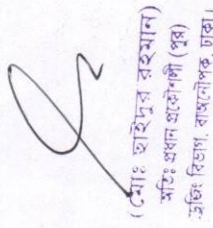 (মোঃ ছাইদুর রহমান)
অতিঃ প্রধান প্রকৌশলী (পুর)
ড্রেজিং বিভাগ, বাজনৌপক, ঢাকা।